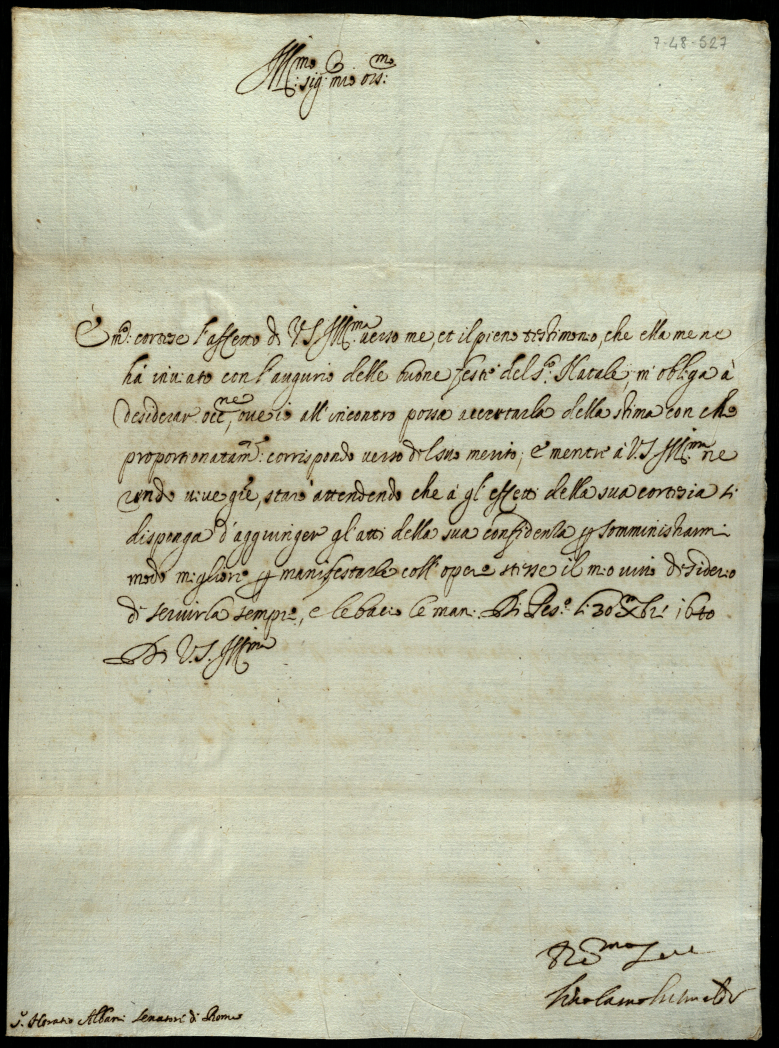 7-48-527
Ill.mo sig.r mio oss.mo
È m.o cortese l'affetto di V.S. Ill.ma verso me, et il pieno testimonio, che ella me ne
hà inviato con l'augurio delle buone feste del s.o Natale, m'obliga à
desiderar occ.ne, ove io all'incontro possa accertarla della stima con che
proportionatam.te corrispondo verso del suo merito; e mentre à V.S. Ill.ma ne
rendo vive gr̃ie, starò attendendo che à gl'effetti della sua cortesia si
disponga d'aggiunger gl'atti della sua confidenza p somministrarmi
modo migliore p manifestarle coll'opere stesse il mio vivo desiderio
di servirla sempre, e le bacio le mani. Di Pes.o li 30 Xbre 1640
Di V.S. Ill.ma
S.r Horatio Albani Senatore di Roma